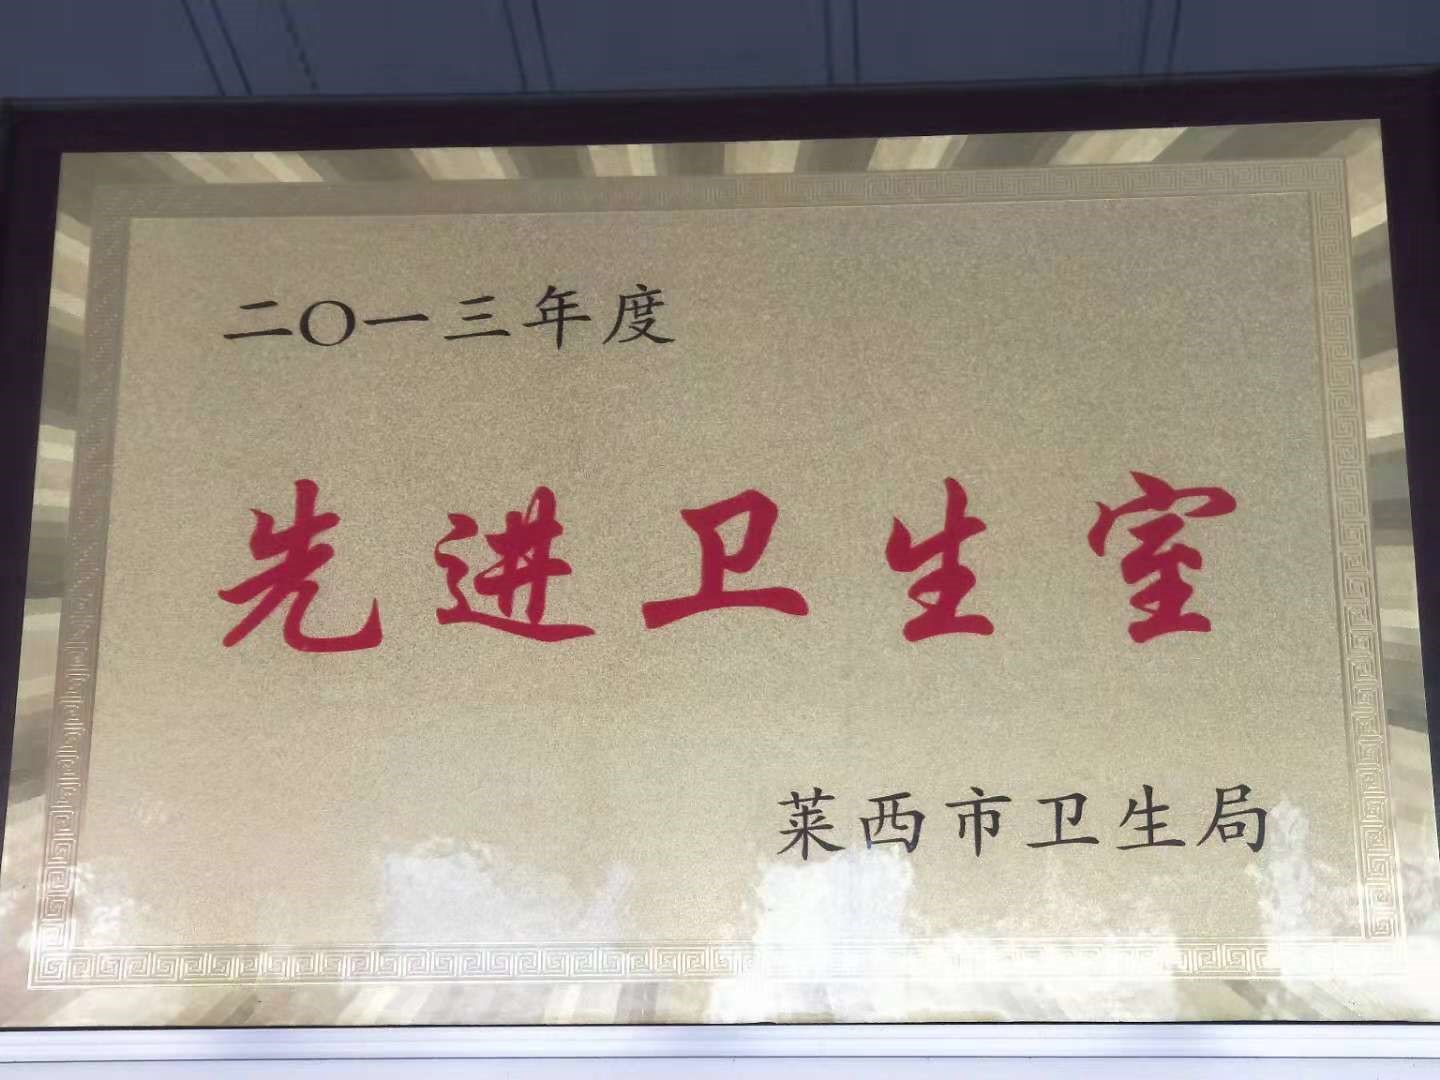 二〇一三年度
先进卫生室
莱西市卫生局